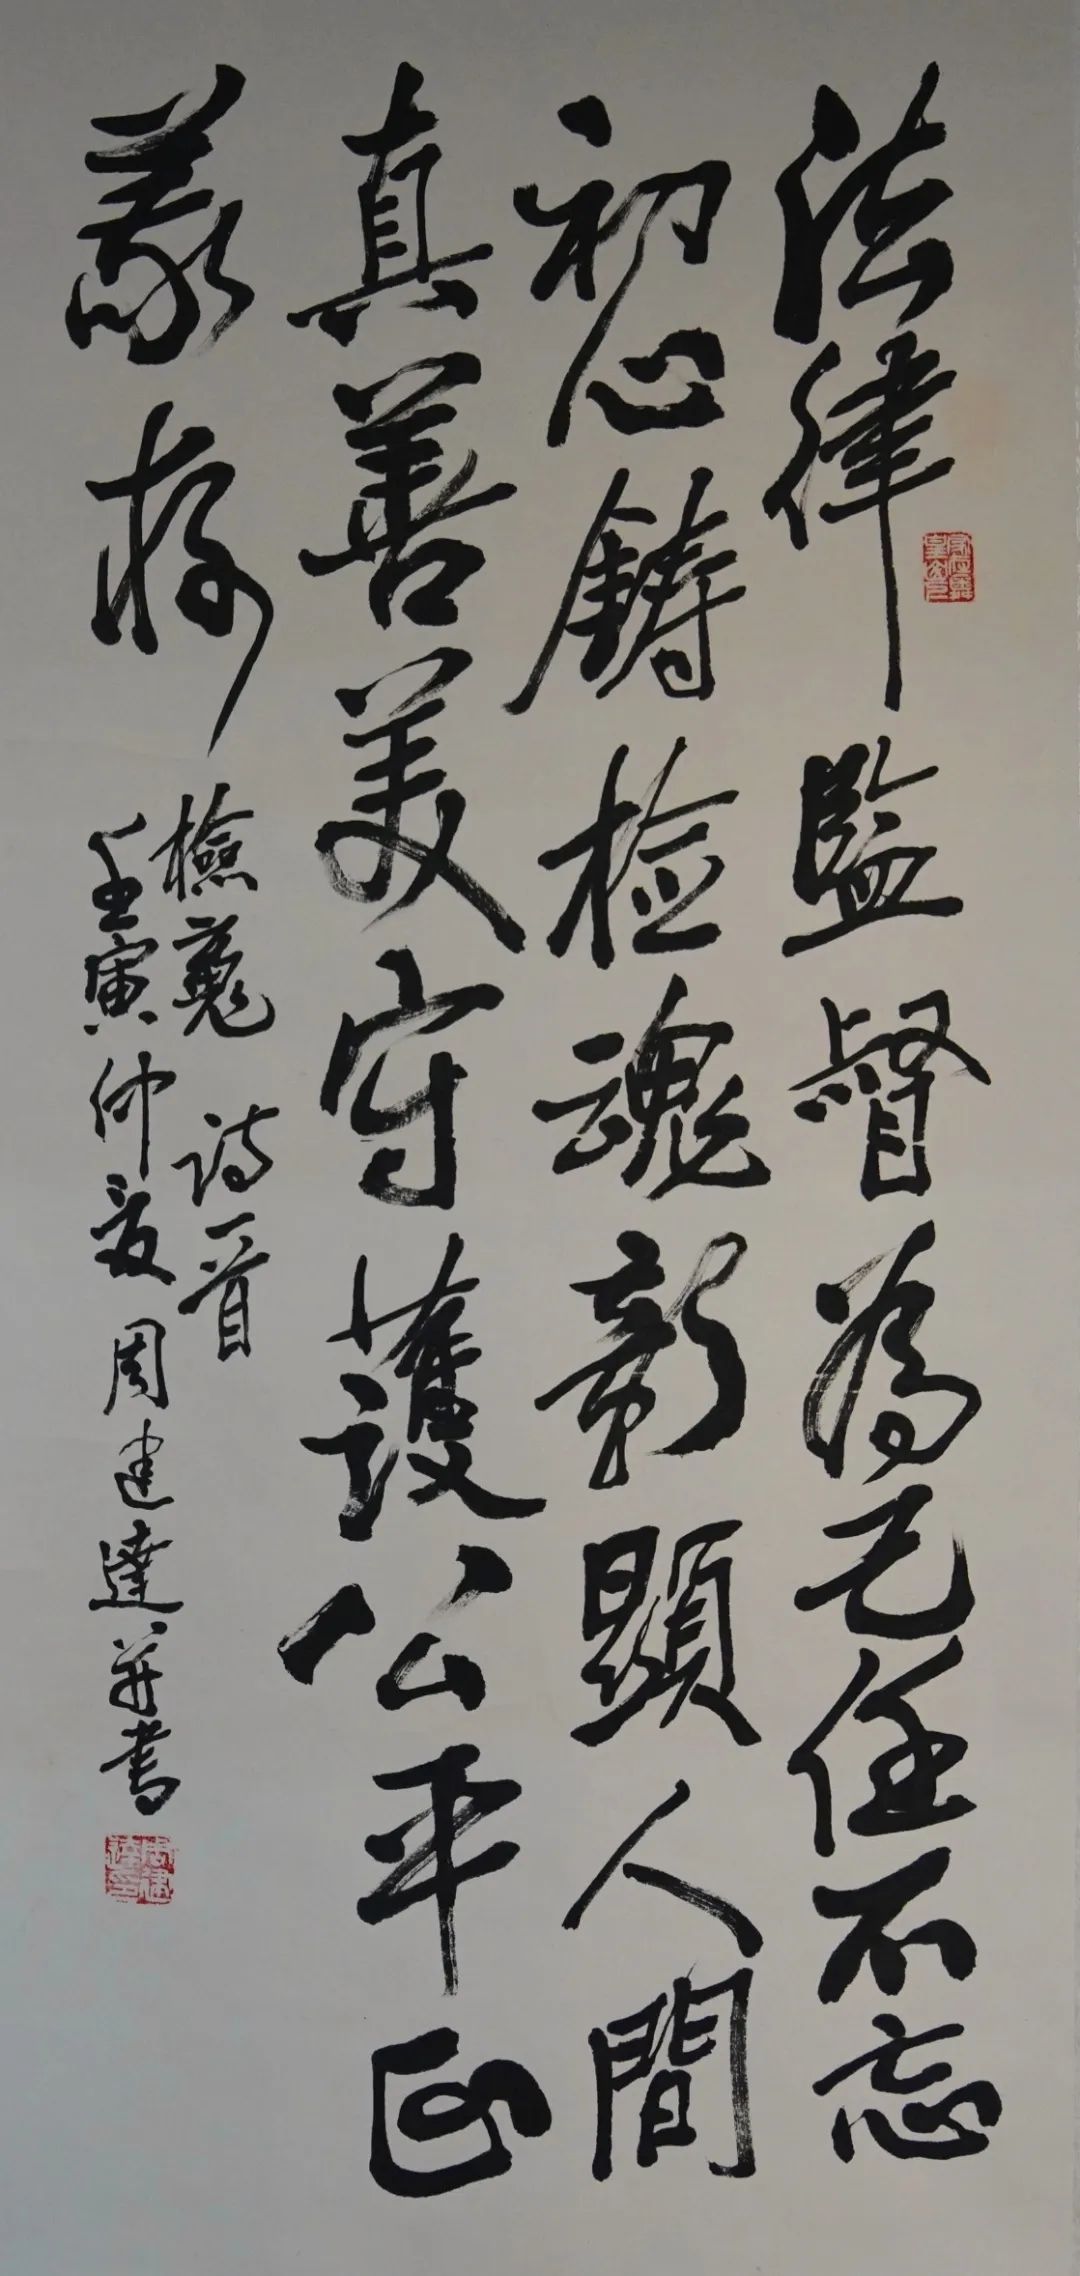 法律監督為己任不忘
初心鑄检魂彰顯人間
真善美守護公平正
義存
檢魂诗一首
壬寅仲夏周建達并書